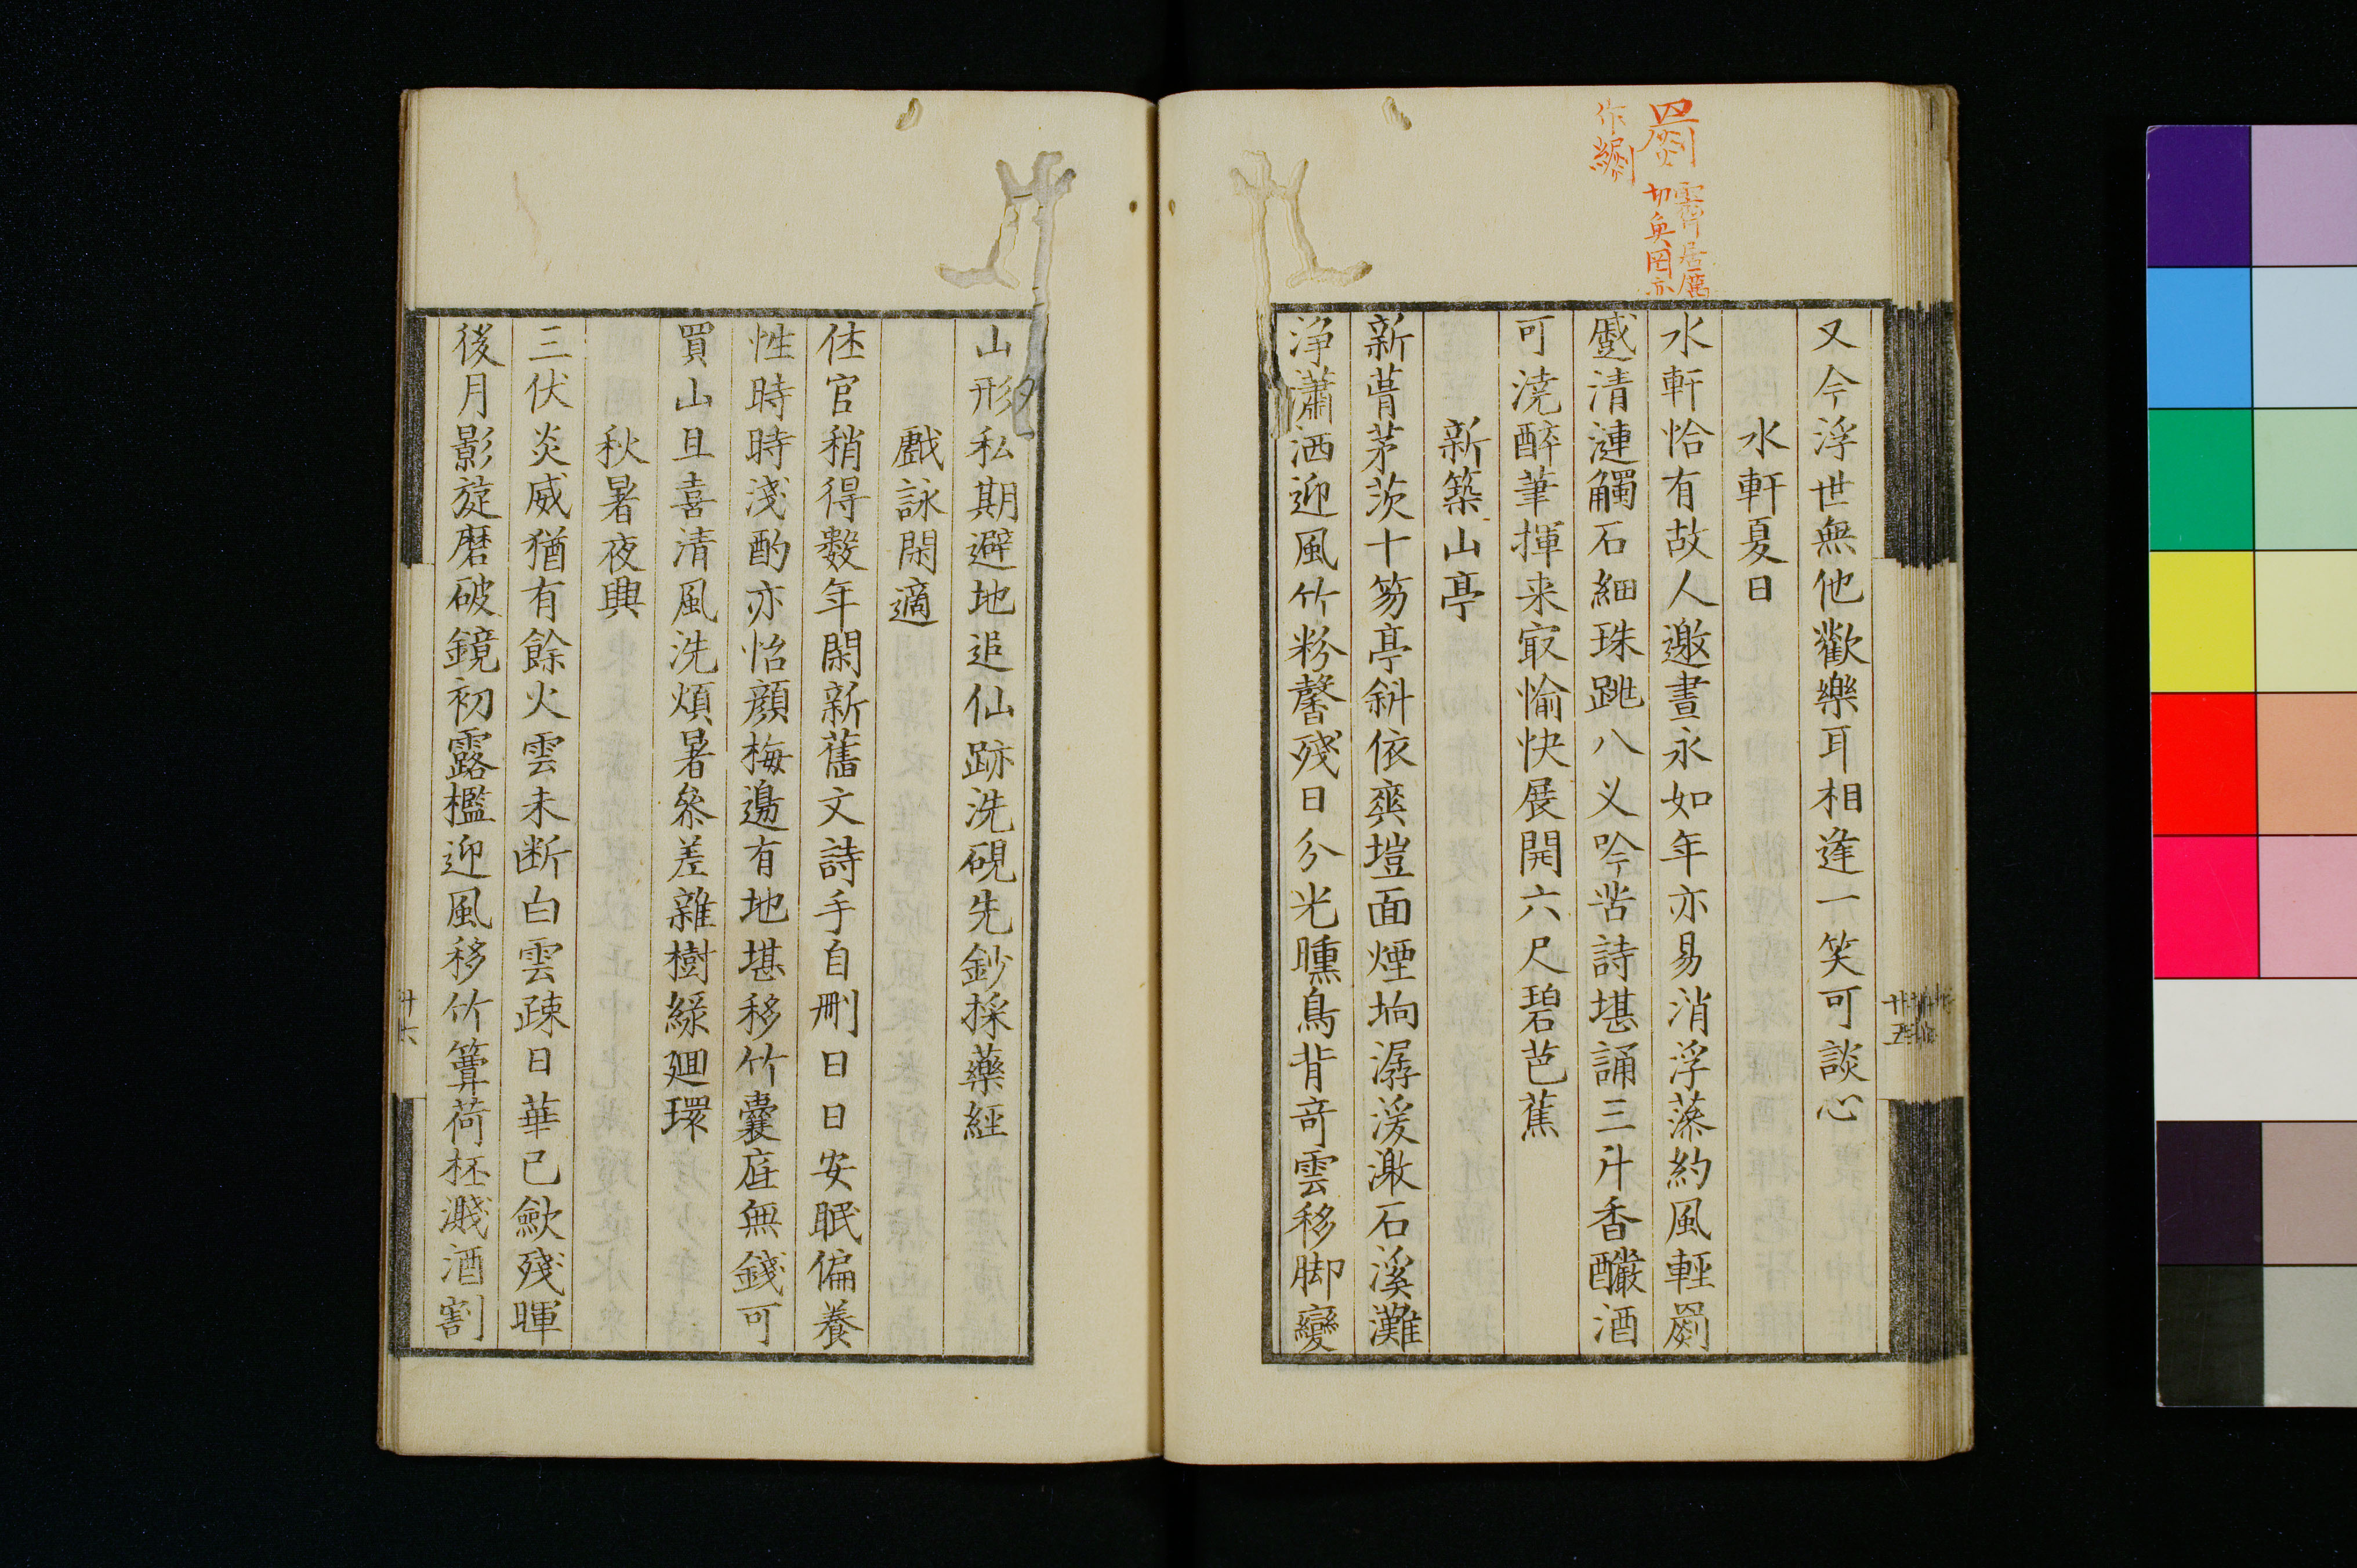 又今浮世無他歡樂耳相逢一笑可談心
水軒夏日
水軒恰有故人邀晝永如年亦易消浮藻約風輕罽
蹙清漣觸石細珠跳八义吟苦詩堪誦三升香釅酒
可澆醉筆揮来㝡愉快展開六尺碧芭蕉
新築山亭
新葺茅茨十笏亭斜依爽塏面煙坰潺湲激石溪灘
浄瀟洒迎風竹粉馨殘日分光曛鳥背竒雲移脚變
山形私期避地追仙跡洗硯先鈔採藥經
戲詠閑適
休官稍得數年閑新舊文詩手自刪日日安眠偏養
性時時淺酌亦怡顔梅邊有地堪移竹囊底無錢可
買山且喜清風洗煩暑叅差雜樹綠廻環
秋暑夜興
三伏炎威猶有餘火雲未断白雲疎日華已歛殘暉
後月影旋磨破鏡初露檻迎風移竹簟荷杯濺酒割
罽
居厲
切魚罔亦
作
廿五
廿六
夕